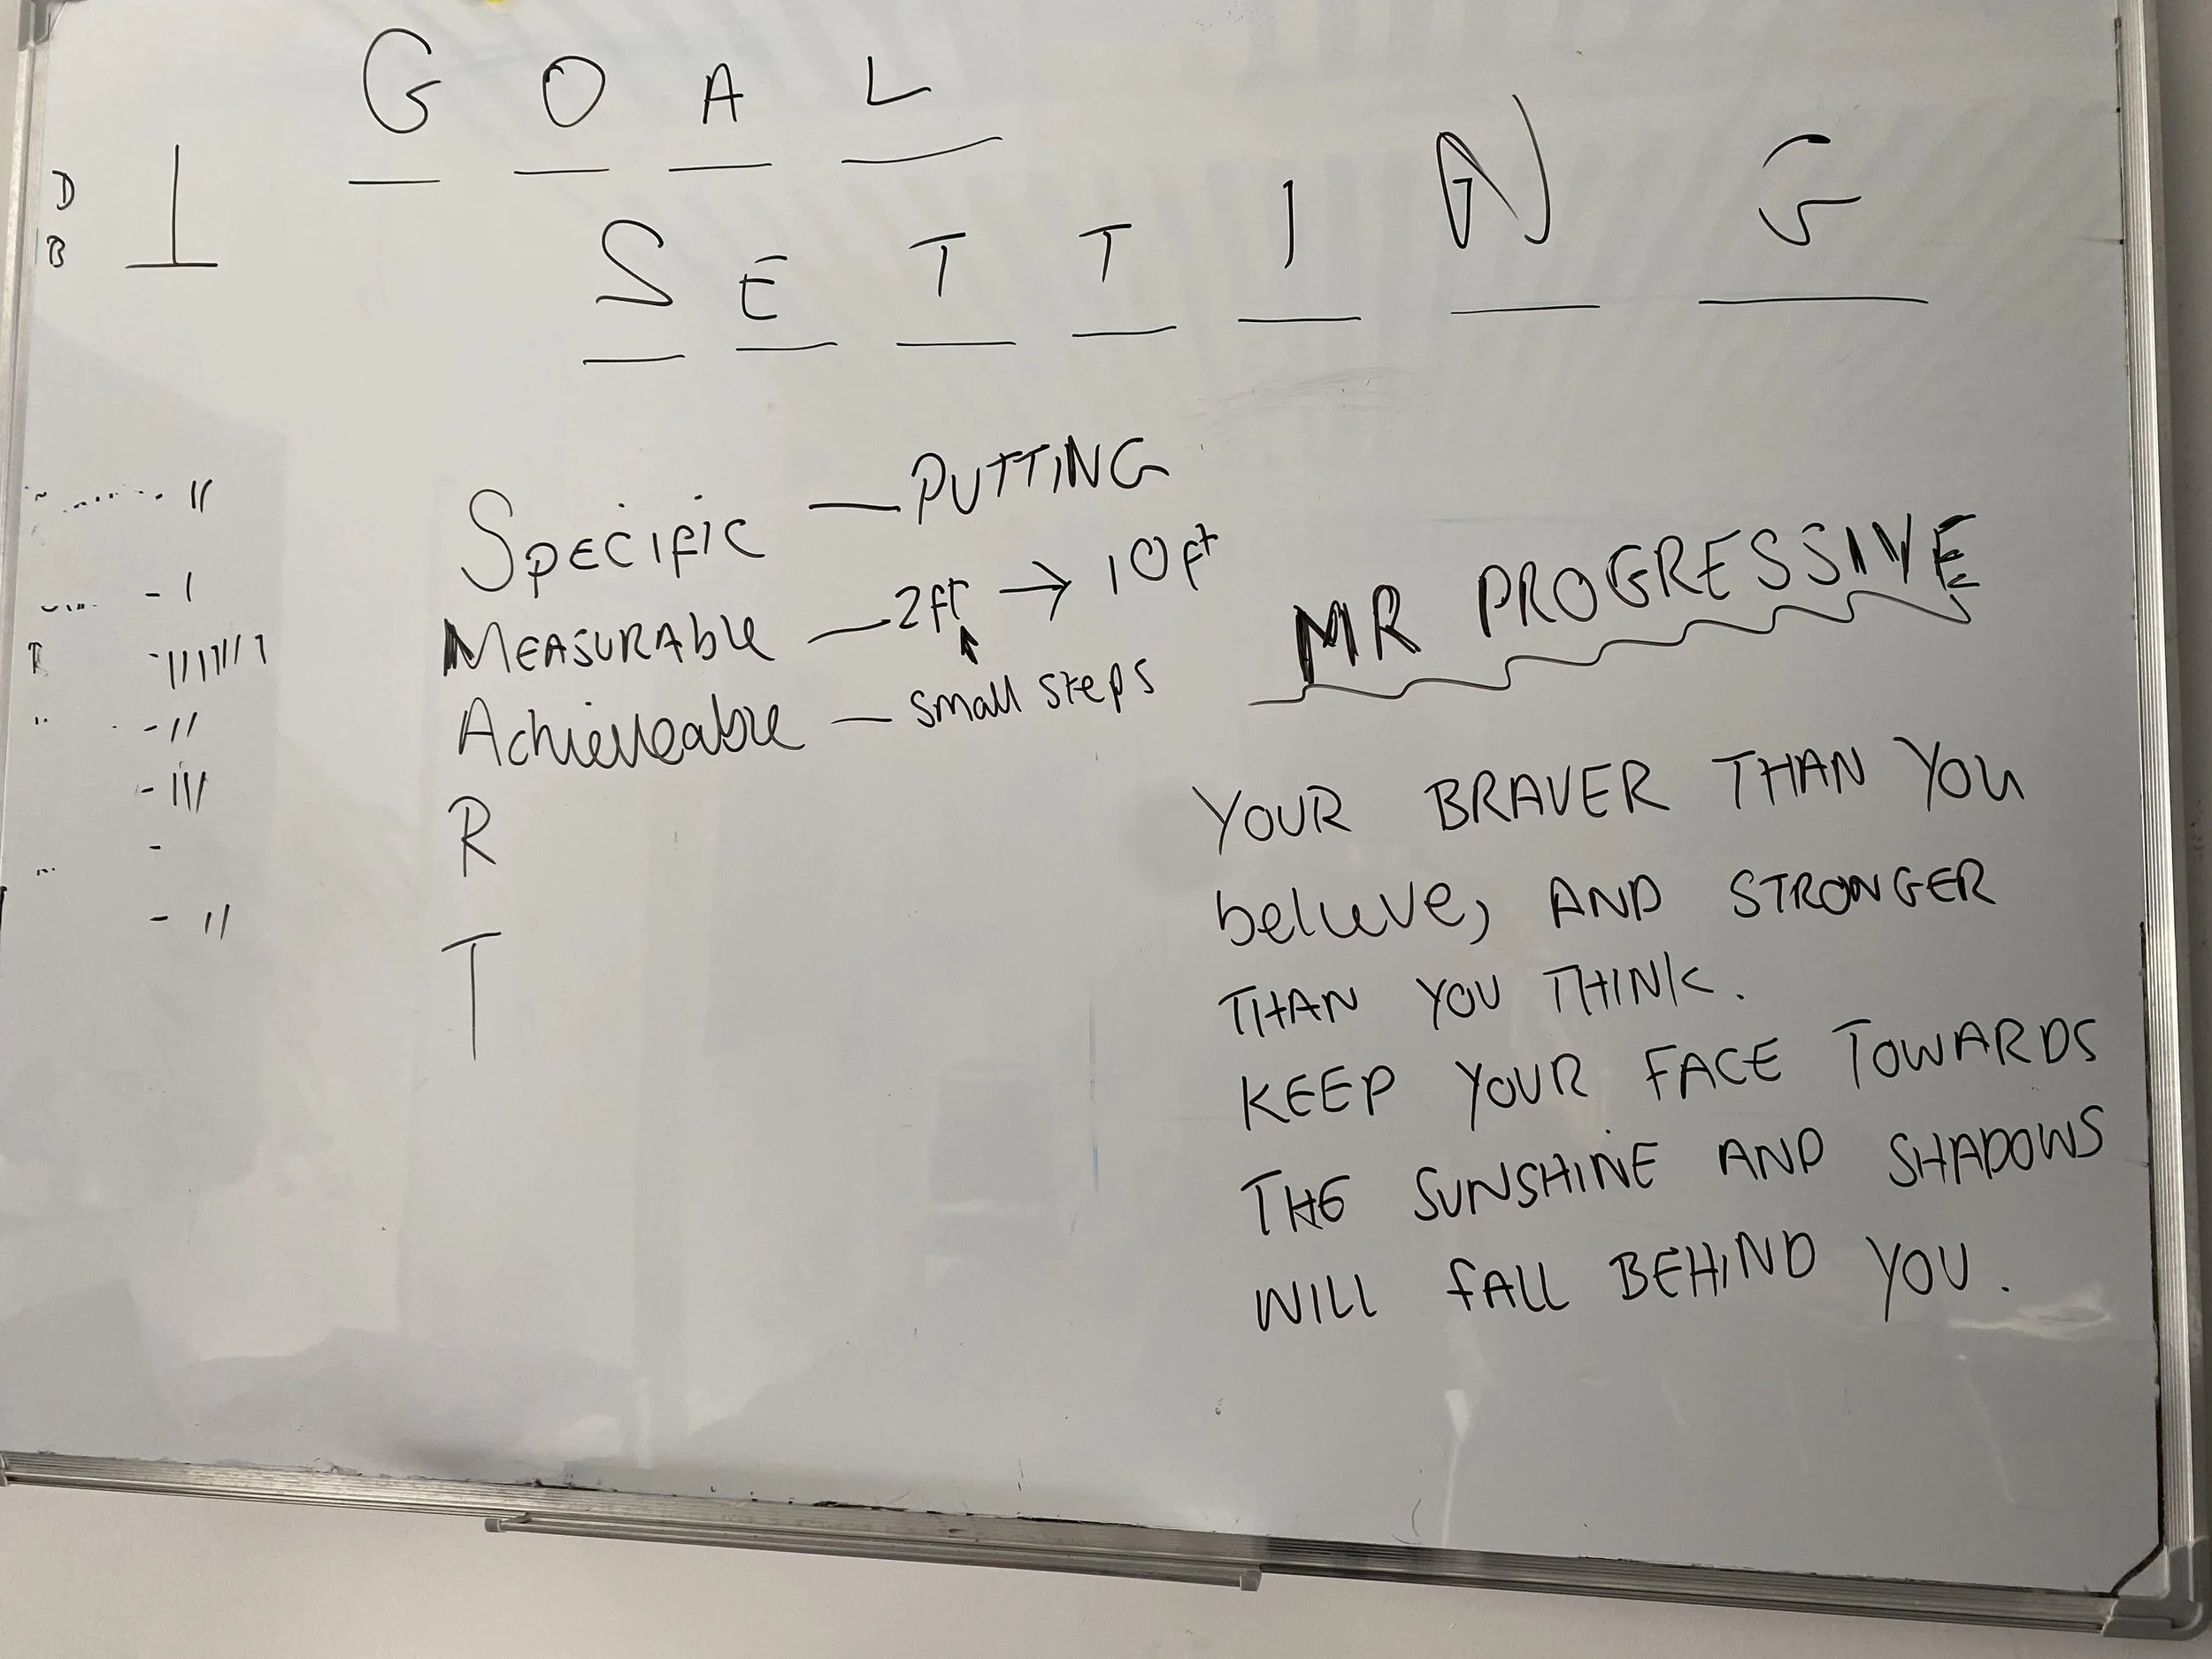 GOAL
D
B
SETTING
Specific — PUTTING
MEASURABLE — 2ft → 10ft
Achieveable — small steps
R
T
MR PROGRESSIVE
YOUR BRAVER THAN YOU
believe, AND STRONGER
THAN YOU THINK.
KEEP YOUR FACE TOWARDS
THE SUNSHINE AND SHADOWS
WILL FALL BEHIND YOU.